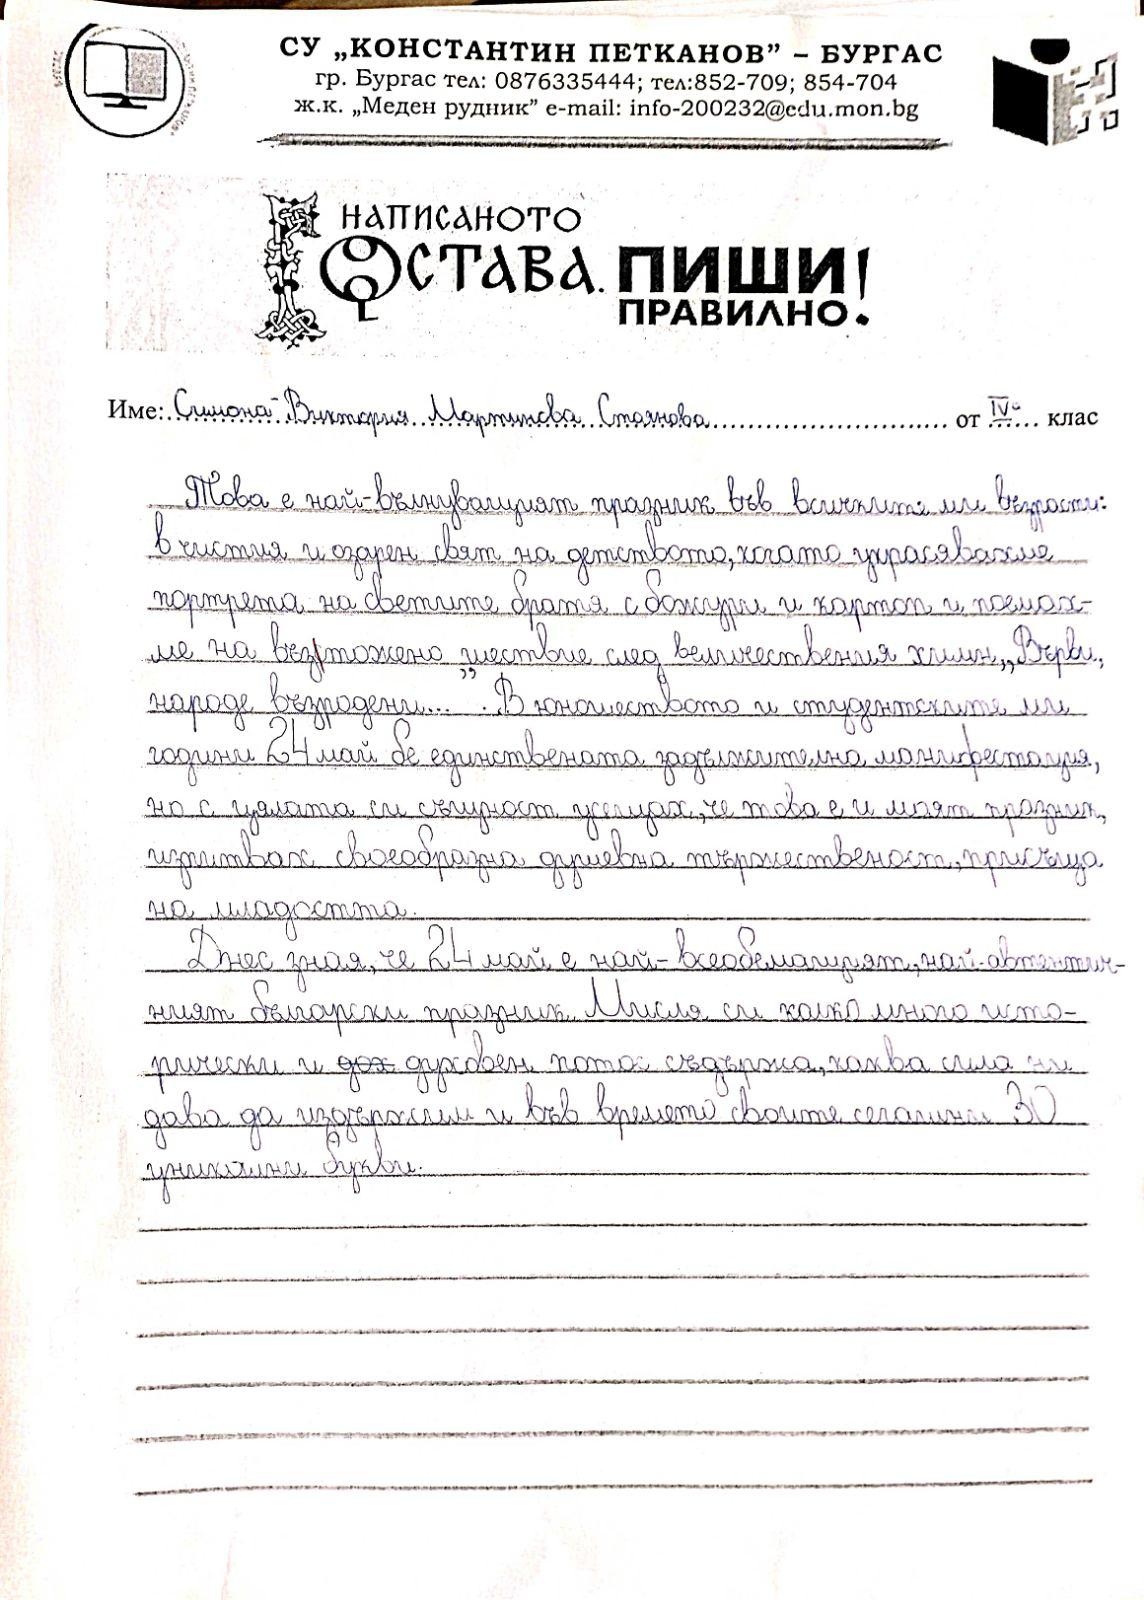 СУ „КОНСТАНТИН ПЕТКАНОВ” – БУРГАС
гр. Бургас тел: 0876335444; тел:852-709; 854-704
ж.к. „Меден рудник” e-mail: info-200232@edu.mon.bg
НАПИСАНОТО
ОСТАВА. ПИШИ
ПРАВИЛНО!
Име: Симона-Виктория Мартинова Стоянова от IVа клас
Това е най-вълнуващият празник във всичките ми възрасти:
в чистия и озарен свят на детството, когато украсявахме
портрета на светите братя с божури и картон и поемах-
ме на възтожено шествие след величествения химн „Върви,
народе възродени...”. В юношеството и студентските ми
години 24 май бе единствената задължителна манифестация,
но с цялата си същност усещах, че това е и моят празник,
изпитвах своеобразна душевна тържественост, присъща
на младостта.
Днес зная, че 24 май е най-всеобемащият, най-автентич-
ният български празник. Мисля си колко много исто-
рически и духовен потос съдържа, каква сила ни
дава да издържим и във времето своите сегашни 30
уникални букви.